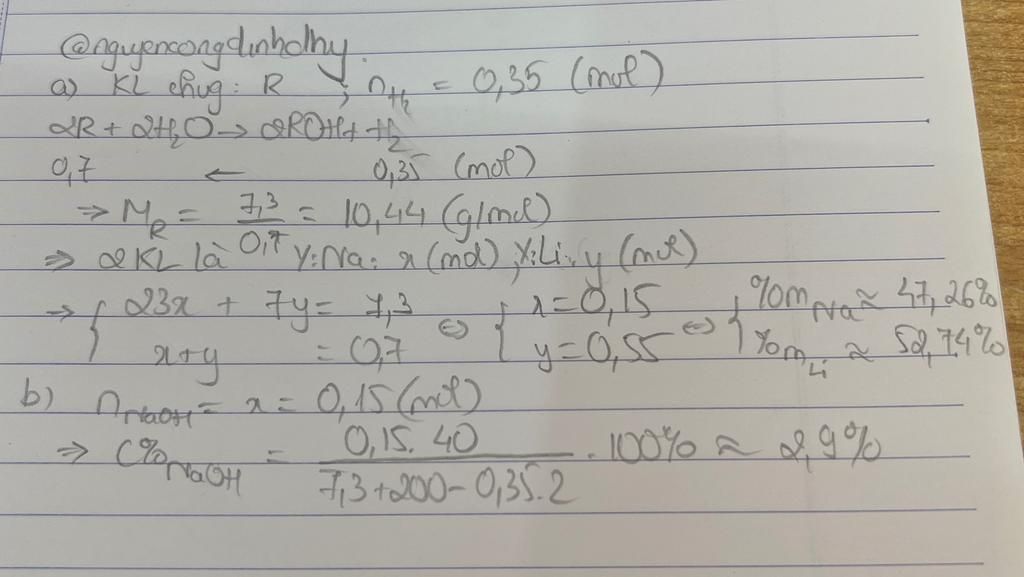 @nguyencongdinhdhy.
a) KL chug: R ; nH₂ = 0,35 (mol)
2R + 2H₂O → 2ROH + H₂
0,7 ← 0,35 (mol)
⇒ M_R = 7,3/0,7 = 10,44 (g/mol)
⇒ 2 KL là Y: Na: x (mol); X: Li: y (mol)
→ { 23x + 7y = 7,3 ⇔ { x = 0,15 ⇔ { %m_Na ≈ 47,26%
x+y = 0,7 y = 0,55 %m_Li ≈ 52,74%
b) n_NaOH = x = 0,15 (mol)
⇒ C%_NaOH = (0,15.40)/(7,3+200-0,35.2) .100% ≈ 2,9%